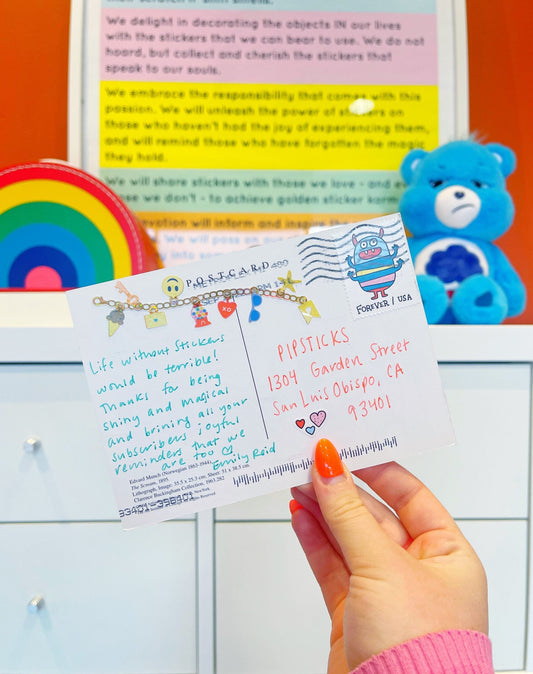 We delight in decorating the objects IN our lives
with the stickers that we can bear to use. We do not
hoard, but collect and cherish the stickers that
speak to our souls.
We embrace the responsibility that comes with this
passion. We will unleash the power of stickers on
those who haven't had the joy of experiencing them,
and will remind those who have forgotten the magic
they hold.
We will share stickers with those we love - and even
those we don't - to achieve golden sticker karma.
will inform and inspire the
We will pass on our
POSTCARD
XO
FOREVER | USA
Life without Stickers
would be terrible!
Thanks for being
shiny and magical
and brining all your
subscribers joyful
reminders that we
are too
Emily Reid
PIPSTICKS
1304 Garden Street
San Luis Obispo, CA
93401
Edvard Munch (Norwegian 1863-1944)
The Scream, 1895
Lithograph, Image: 35.5 x 25.3 cm Sheet: 51 x 38.5 cm
Clarence Buckingham Collection, 1963.282